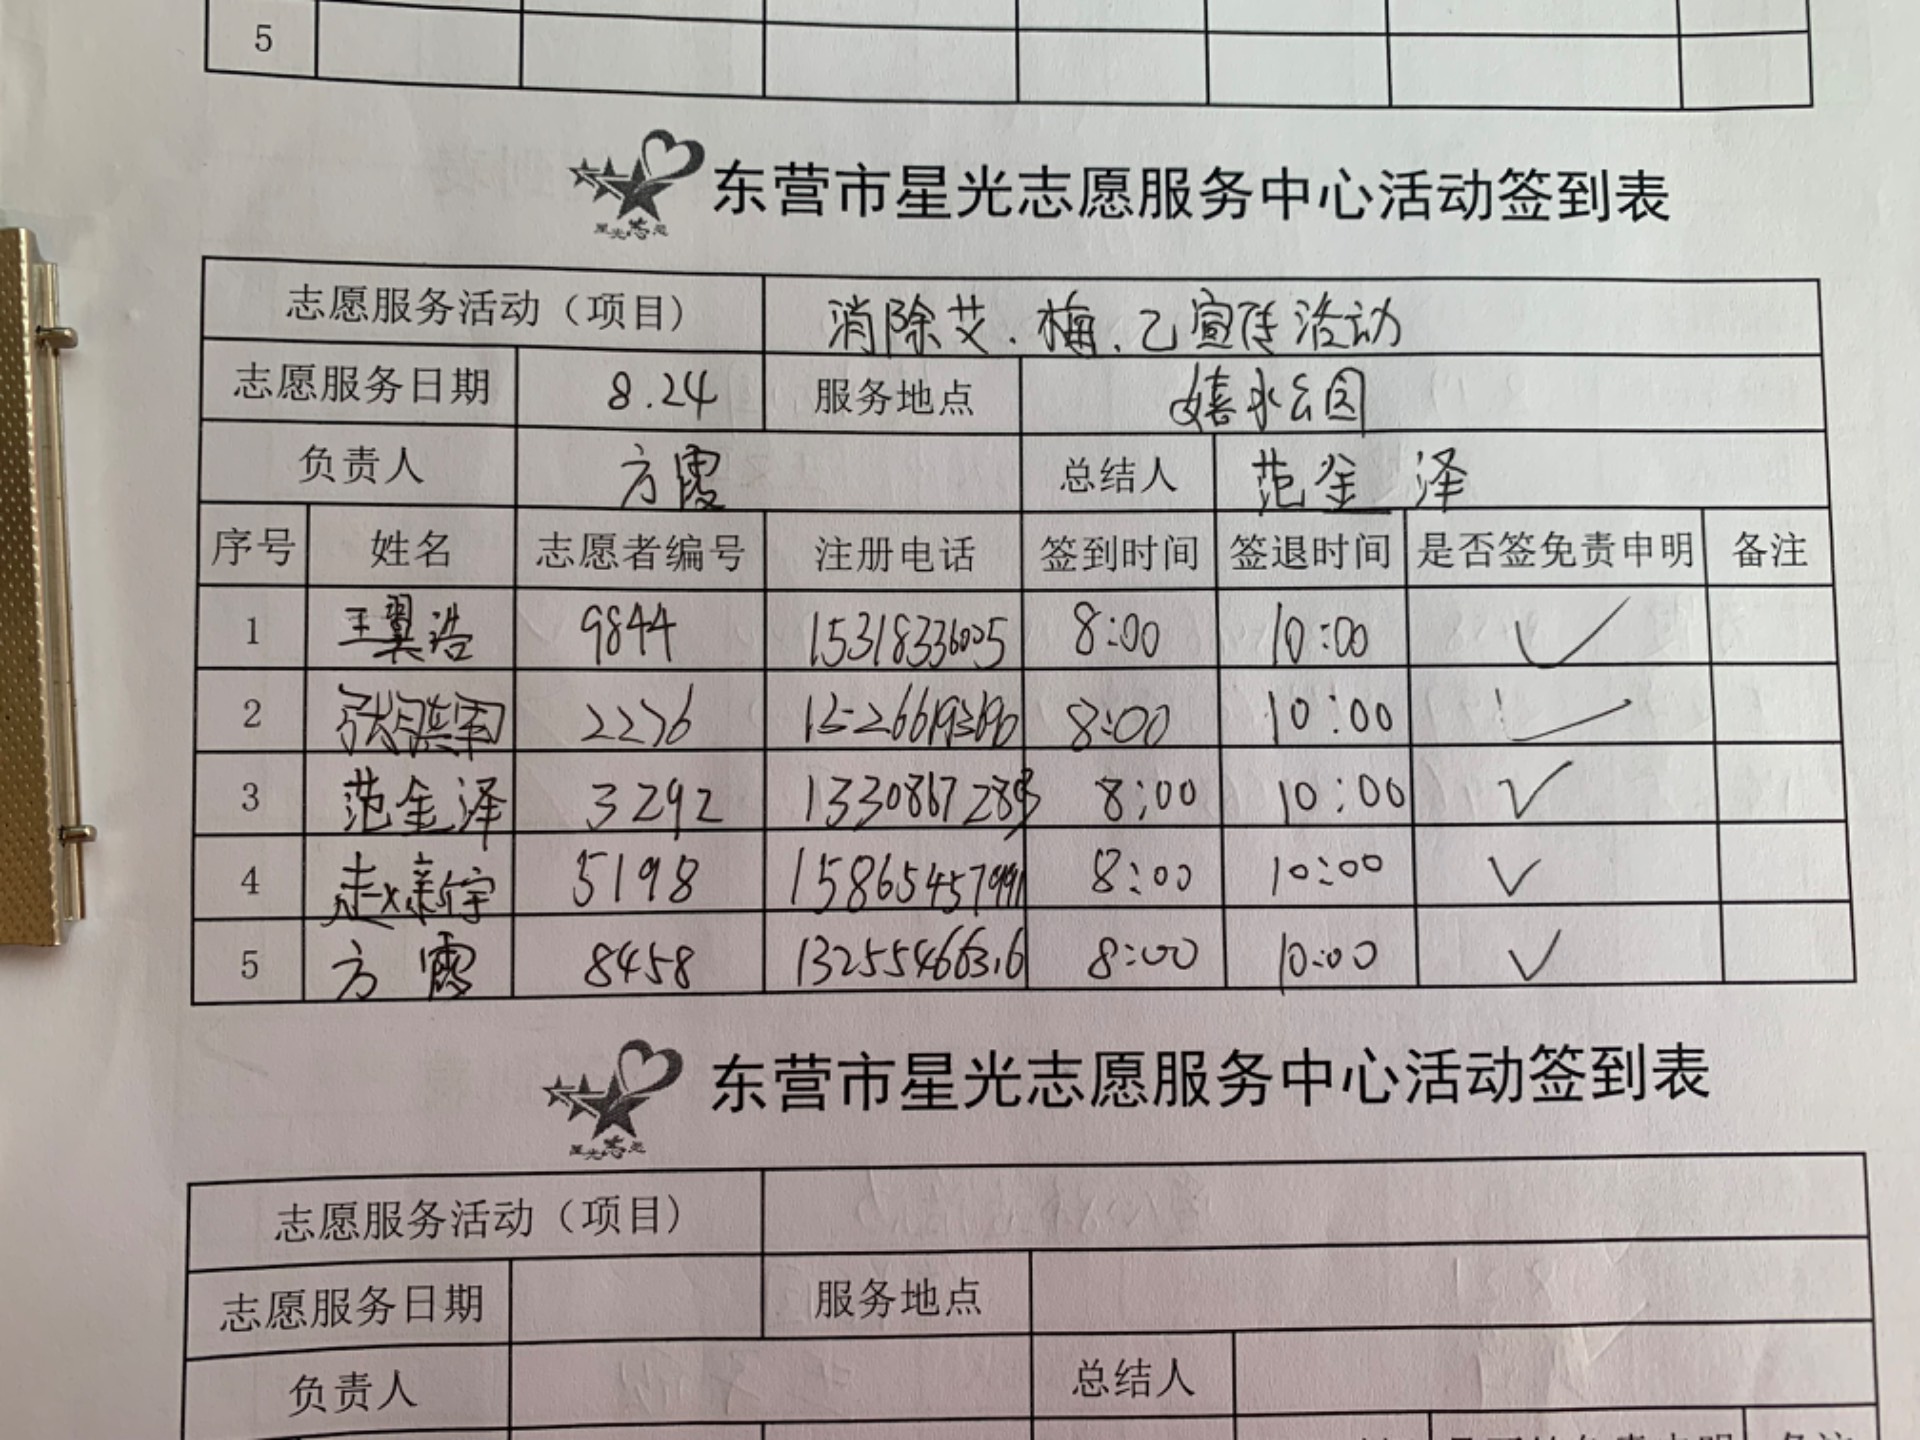 5
星光志愿
东营市星光志愿服务中心活动签到表
志愿服务活动（项目） 消除艾.梅、乙宣传活动
志愿服务日期 8.24 服务地点 嬉水公园
负责人 方霞 总结人 范金泽
序号 姓名 志愿者编号 注册电话 签到时间 签退时间 是否签免责申明 备注
1 王翼浩 9844 15318336025 8:00 10:00 ✓
2 2276 8:00 10:00 ✓
3 范金泽 3292 8:00 10:00 ✓
4 赵新宇 5198 15865457991 8:00 10:00 ✓
5 方霞 8458 13255466316 8:00 10:00 ✓
星光志愿
东营市星光志愿服务中心活动签到表
志愿服务活动（项目）
志愿服务日期 服务地点
负责人 总结人